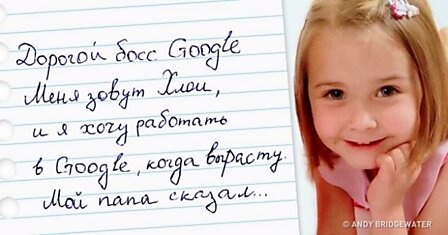 Дорогой босс Google
Меня зовут Хлои,
и я хочу работать
в Google, когда вырасту.
Мой папа сказал...
© ANDY BRIDGEWATER